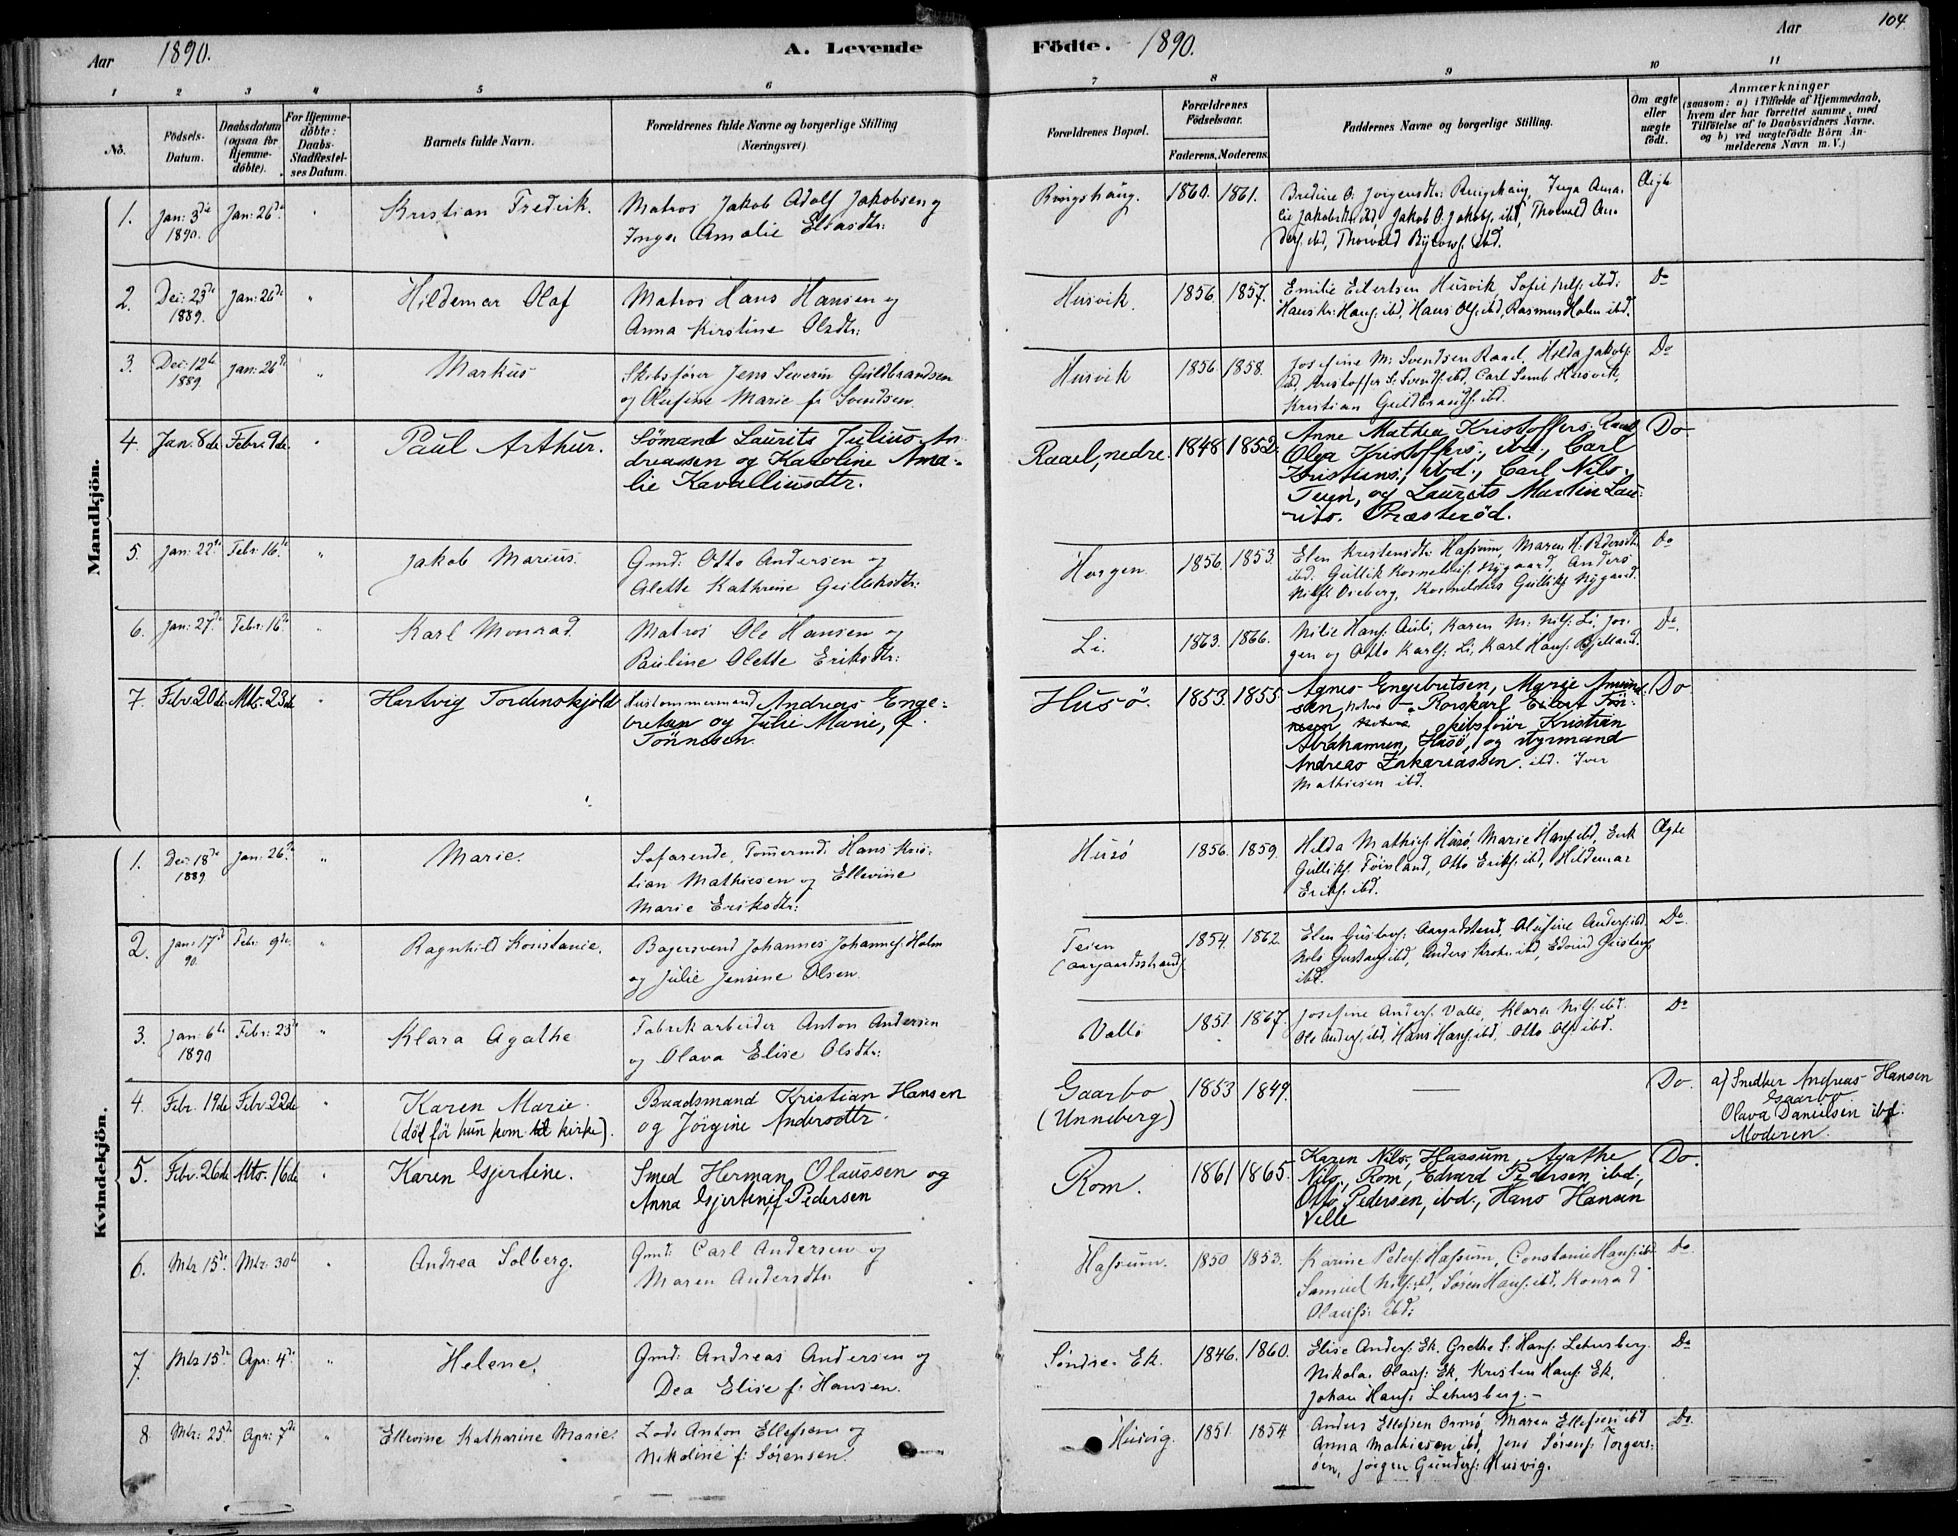 Aar 1890. A. Levende Födte. 1890. Aar 104
1 2 3 4 5 6 7 8 9 10 11
No.
Födsels-Datum.
Daabsdatum (ogsaa for Hjemme-döbte).
For Hjemme-döbte: Daabs-Stadfæstel-ses Datum.
Barnets fulde Navn.
Forældrenes fulde Navne og borgerlige Stilling
(Næringsvei).
Forældrenes Bopæl.
Forældrenes Födselsaar.
Faderens. Moderens.
Faddernes Navne og borgerlige Stilling.
Om ægte eller uægte födt.
Anmærkninger
(saasom: a) i Tilfælde af Hjemmedaab,
hvem der har forrettet samme, med
Tilföielse af to Daabsvidners Navne,
og b) ved uægtefödte Börn An-
melderens Navn m. V.)
Mandkjön.
1. Jan: 3de 1890. Jan: 26de " Kristian Fredrik. Matros Jakob Adolf Jakobsen og
Inga Amalie Eliasdtr: Ringshaug. 1860. 1861. Ægte
Thorvald
2. Dec: 23de 1889. Jan: 26de " Hildemar Olaf Matros Hans Hansen og
Anna Kirstine Olsdtr: Husvik. 1856. 1857. Emilie Eilertsen Husvik, Sofie
Hans Kr: Hans: ibd, Hans Ols: ibd, Rasmus Holm ibd. Do
3. Dec: 12te 1889 Jan: 26de " Markus Skibsfører Jens Severin Guldbrandsen
og Olufine Marie f. Svendsen. Husvik 1856 1858. Josefine M. Svendsen Raael, Hilda Jakobs:
ibd, Kristoffer S. Svends: ibd, Carl Semb Husvik,
Kristian Guldbrands: ibd. Do
4. Jan. 8de Febr. 9de " Paul Arthur. Sömand Laurits Julius An-
dreassen og Karoline Ama-
lie Kavalliusdtr. Raael, nedre. 1848 1852. Anne Mathea Kristoffers: Raael
Olga Kristoffers:, ibd., Carl
Kristians:, ibd., Carl Nils:
Teyn, og Laurits Martin Lau-
rits. Præsteröd. Do
5. Jan: 22de Febr. 16de " Jakob Marius. Gmd: Otto Andersen og
Alette Kathrine Gulliksdtr: Horgen. 1856. 1853. Elen Kristensdtr: Hassum, Maren
ibd. Gullik Nygaard, Anders
Nils: Oseberg, Gulliks: Nygaard. Do
6. Jan: 27de Febr: 16de " Karl Monrad. Matros Ole Hansen og
Pauline Olette Eriksdtr: Li. 1863. 1866. Karen M. Nils: Li, Jör-
gen og Otto Karls: Li, Karl Hans: Bjelland. Do.
7. Febr 20de Mts. 23de " Hartvig Tordenskjold Andreas Enge-
bretsen og Julie Marie, f.
Tönnesen. Husö. 1853. 1855 Agnes Engebretsen, Marie Amund-
sen, Rorskarl Eilert Tön-
nesen, skibsförer Kristian
Abrahamsen, Husö, og styrmand
Andreas Zakariassen. ibd. Iver
Mathiesen ibd. Do
Kvindekjön.
1. Dec: 18de 1889 Jan: 26de " Marie. Søfarende, Tømmermd. Hans Kris-
tian Mathiesen og Ellevine
Marie Eriksdtr: Husø 1856. 1859. Hilda Mathies: Husø, Marie Hans: ibd, Erik
Gulliks: Otto Eriks: ibd, Hildemar
Eriks: ibd. Ægte
2. Jan: 17de 90. Febr: 9de " Ragnhild Konstanse. Bagersvend Johannes Johannes: Holm
og Julie Jensine Olsen. Teien
(Aargaardsstrand). 1854. 1862. Elen Gustavs: Aargdstrand, Olufine Anders: ibd
Nils Gustavs: ibd, Anders Krok: ibd, Edvard Gustavs:
ibd. Do
3. Jan: 6te 1890 Febr: 23de " Klara Agathe Fabrikarbeider Anton Andersen
og Olava Elise Olsdtr: Vallö 1851. 1867. Josefine Anders: Vallö, Klara Nils: ibd.
Ole Anders: ibd, Hans Hans: ibd, Otto Ols: ibd. Do
4. Febr. 19de Febr. 22de " Karen Marie.
(död för hun kom til kirke). Baadsmand Kristian Hansen
og Jörgine Andersdtr. Gaarbo
(Unneberg) 1853 1849. — Do. af Snedker Andreas Hansen
Gaarbo
Olava Danielsen ibd.
Moderen.
5. Febr. 26de Mts. 16de " Karen Gjertine. Smed Herman Olaussen og
Anna Gjertine, f. Pedersen Rom. 1861 1865. Karen Nils., Hassum, Agathe
Nils., Rom, Edvard Pedersen, ibd.,
Otto Pedersen, ibd., Hans Hansen
Velle Do.
6. Mts 15de Mts. 30te " Andrea Solberg. Gmd: Carl Andersen og
Maren Andersdtr. Hassum. 1850 1853. Karine Peders: Hassum, Constanse Hans: ibd.
Samuel Nils: ibd, Søren Hans: ibd. Konrad
Olaus: ibd: Do.
7. Mts 15de Apr: 4de " Helene. Gmd: Andreas Andersen og
Dea Elise f: Hansen. Søndre Ek. 1846. 1860. Elise Anders: Ek. Grethe S. Hans: Lehusberg.
Nikolai Olaus: Ek, Kristen Hans: Ek,
Johan Hans: Lehusberg. – Do
8 Mts: 25de Apr: 7de " Ellevine Katharine Marie. Lods Anton Ellefsen og
Nikoline f: Sörensen. Husvig. 1851. 1854 Anders Ellefsen Ormø, Maren Ellefsen ibd
Anna Mathiesen ibd, Jens Sörens: Torgers-
øen, Jørgen Gunders: Husvig. Do.